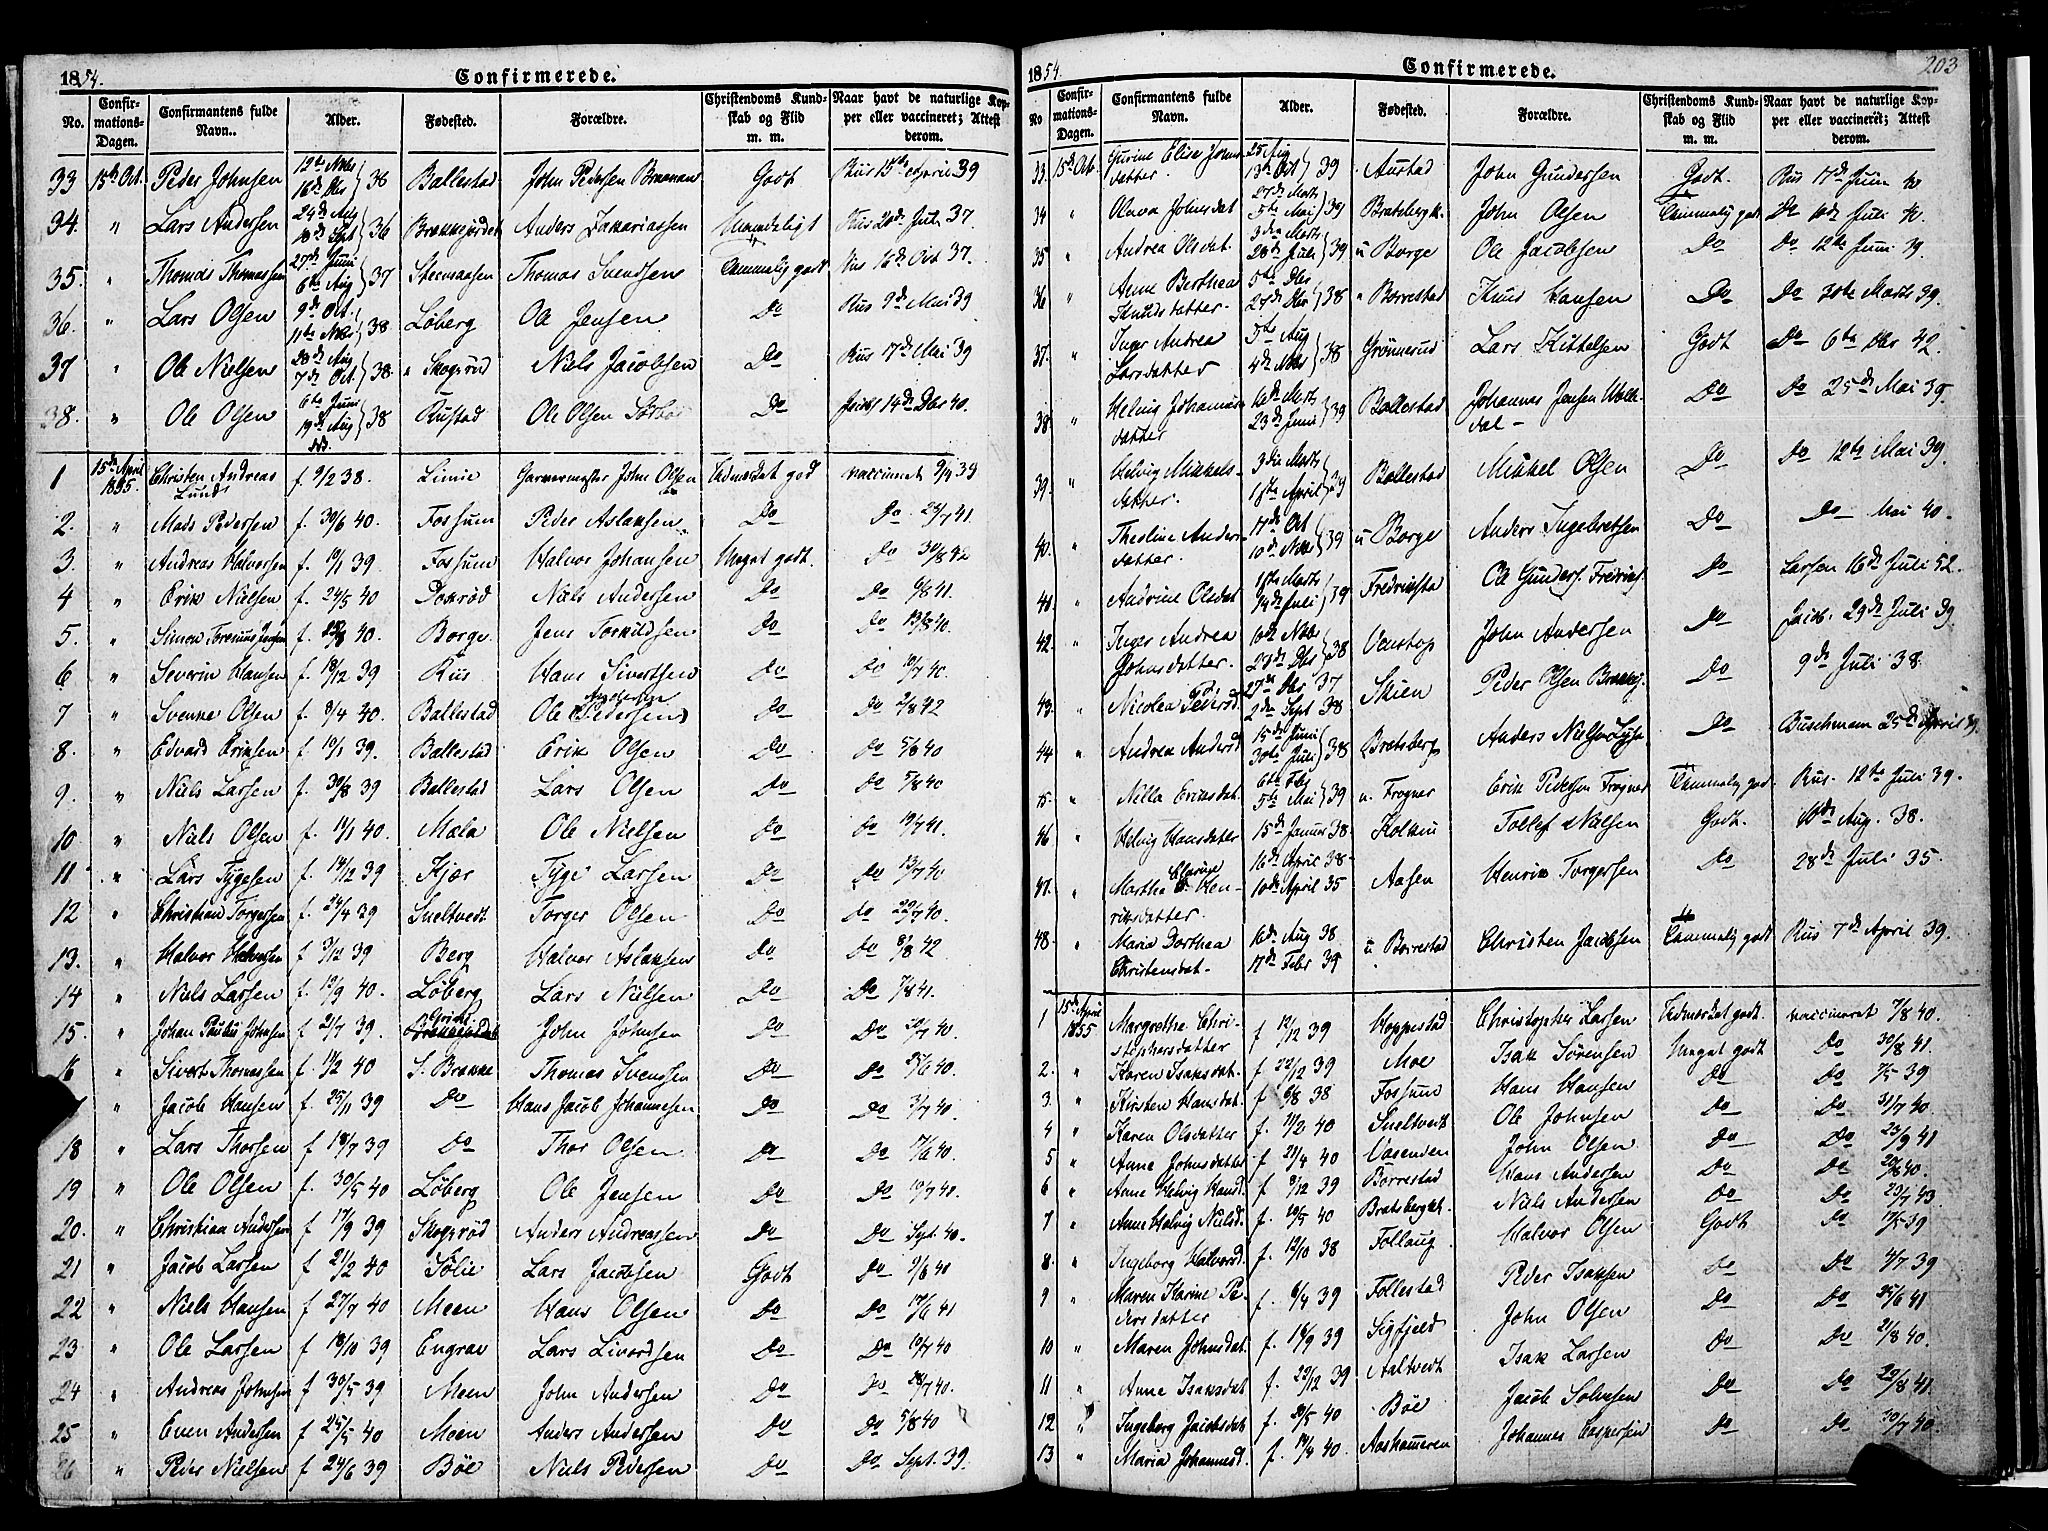 1854.
Confirmerede.
No.
Confir-
mations-
Dagen.
Confirmantens fulde
Navn..
Alder.
Fødested.
Forældre.
Christendoms Kund-
skab og Flid
m. m.
Naar havt de naturlige Kop-
per eller vaccineret; Attest
derom.
33 15de Oct. Peder Johnsen 12te Nobr 16de Dbr } 38 Ballestad John Pedersen Godt Rus 15de April 39
34. " Lars Andersen 24de Aug 18de Sept } 36 Brekkejordet Anders Zakariassen Rus 20de Juli 37.
35. " Thomas Thomassen 27de Juni 6te Aug } 37 Steensaasen Thomas Svendsen Temmelig godt Rus 16de Oct 37.
36. " Lars Olsen 9de Oct. 11te Nobr } 38 Løberg Ole Jensen Do Rus 9de Mai 39
37 " Ole Nielsen 28de Aug 7de Oct. } 38 " Skogsrud Niels Jacobsen Do Rus 17de Mai 39
38. " Ole Olsen 6te Juni 19de Aug } 38 Rustad Ole Olsen Do 14de Dbr 40.
1 15de April 1855. Christen Andreas Lund f 9/2 38. Limie Garvermester John Olsen Udmærket god vaccineret 9/9 39
2. " Mads Pedersen f. 30/6 40. Fossum Peder Aslaksen Do Do 23/7 41.
3. " Andreas Halvorsen f. 19/1 39. Fossum Halvor Johansen Meget godt. Do 30/8 42
4 " Erik Nielsen f. 24/5 40 Doxrød Niels Andersen Do Do 6/8 41.
5. " Simon Torenius Jensen f. 25/8 40. Borge Jens Torkildsen Do Do 13/8 40.
6 " Severin Hansen f. 18/12 39 Rus Hans Sivertsen Do Do 10/7 40.
7 " Svenke Olsen f. 8/4 40. Ballestad Ole (Pedersen) Do Do 2/8 42
8. " Edvard Eriksen f. 19/1 39. Ballestad Erik Olsen Do Do 5/6 40
9. " Niels Larsen f. 30/8 39 Ballestad Lars Olsen Do Do 5/8 40
10 " Niels Olsen f. 11/1 40. Mæla Ole Nielsen Do Do 19/7 41.
11 " Lars Tygesen f. 14/12 39 Kjær Tyge Larsen Do Do 13/7 40
12 " Christian Torgersen f. 24/4 39 Sneltvedt Torger Olsen Do Do 22/7 40.
13. " Halvor Halvorsen f 3/12 39 Berg Halvor Aslaksen Do Do 8/8 42
14 " Niels Larsen f. 19/9 40. Løberg Lars Nielsen Do Do 7/8 41.
15. " Johan Paulus Johnsen f 21/7 39. John Johnsen Do Do 20/7 40.
16 " Sivert Thomassen f 19/2 40 S. Brekke Thomas Svensen Do Do 25/6 40.
" Jacob Hansen f. 25/11 39 Do Hans Jacob Johannesen Do Do 3/7 40.
18 " Lars Thorsen f 18/7 39 Do Thor Olsen Do Do 17/6 40.
19 " Ole Olsen f. 30/5 40 Løberg Ole Jensen Do Do 10/7 40.
20. " Christian Andersen f 17/9 39 Skogsrød Anders Andreassen Do Do Sept. 40.
21 " Jacob Larsen f 21/2 40 Sølie Lars Jacobsen Godt Do 9/6 40
22 " Niels Hansen f 27/7 40 Moen Hans Olsen Do Do 17/6 41
23 " Ole Larsen f 18/10 39 Engrav Lars Livordsen Do Do 10/7 40
24 " Andreas Johnsen f 30/5 39 Moen John Andersen Do Do 28/7 40.
25 " Even Andersen f 25/5 40 Moen Anders Andersen Do Do 5/8 40
26 " Peder Nielsen f 24/6 39 Bøe Niels Pedersen Do Do Sept. 39.
1854.
Confirmerede.
203
No
Confir-
mations-
Dagen.
Confirmantens fulde
Navn.
Alder.
Fødested.
Forældre.
Christendoms Kund-
skab og Flid
m. m.
Naar havt de naturlige Kop-
per eller vaccineret; Attest
derom.
33. 15de Oct. Gurine Elise Johns-datter. 25 Aug 13de Oct } 39 Austad John Gundersen Godt. Rus 17de Juni 40
34 " Olava Johnsdat 27de Marts 5te Mai } 39 Bratsbergk. John Olsen Temmelig godt Do 10de Juli 40.
35 " Andrea Olsdat. 3die Marts 20de Juli } 39 u Borge Ole Jacobsen Do Do 12te Juni 39.
36 " Anne Berthea Knudsdatter. 5te Dbr 25de Dbr } 38 " Borrestad Knud Hansen Do Do 30te Marts 39.
37. " Inger Andrea Larsdatter 5te Aug 4de Nobr } 38 Grønnerud Lars Kittelsen Godt Do 6te Dbr 42.
38 " Helvig Johannesdatter 16de Marts 23de Juni } 39 Ballestad Johannes Jensen Do Do 25de Mai 39.
39. " Helvig Mikkelsdatter. 3die Marts 18de April } 39 Ballestad Mikkel Olsen Do Do 12te Mai 39.
40. " Theoline Andersdatter. 17de Oct 10de Nobr } 39 u Borge Anders Ingebretsen Do Do Mai 40.
41 " Andrine Olsdat 18de Marts 14de Juli } 39 Fredrikstad Ole Gunders. Fredriks. Do Larsen 16de Juli 52.
42. " Inger Andrea Johnsdatter. 10de Nobr 28de Dbr } 38 Venstop John Andersen Do Jacob. 29de Juli 39
43. " Nicolea Pedersd 27de Dbr 37 2den Sept 38 Skien Peder Olsen Do 9de Juli 38.
44 " Andrea Andersd 15de Juni 30te Juli } 38 Bratsberg Anders Nielsen Do Buschmann 25de April 39.
45 " Nilla Eriksdat. 6te Fbr 5te Mai } 39 u. Frogner Erik Pedersen Frogner Temmelig godt Rus. 12te Juli 39.
46 " Helvig Hansdatter 15de Januar 38. Kolkin Tollef Nielsen Godt. 10de Aug. 38.
47. " Marthe Henriksdatter. 16de April 38 10de April 35 Aasen Henrik Torgersen Do 28de Juli 35.
48. " Maria Dorthea Christensdat. 16de Aug 38 17de Febr 39 u Borrestad Christen Jacobsen Temmelig godt Rus 7de April 39.
1 15de April 1855 Margrethe Christophersdatter f 12/12 39 Hoppestad Christopher Larsen Udmærket godt. vaccineret 7/8 40.
2. " Karen Isaksdat. f 22/12 39 Moe Isak Sørensen Meget godt Do 30/8 41.
3. " Kirsten Hansdat. f 9/8 38 Fossum Hans Hansen Do Do 7/5 39
4 " Karen Olsdatter f. 11/2 40 Sneltvedt Ole Johnsen Do Do 31/7 40.
5 " Anne Johnsdatter f 21/4 40 Vasenden John Olsen Do Do 23/9 41
6 " Anne Helvig Hansd. f 9/12 39 Borrestad Hans Andersen Do Do 20/8 40.
7 " Anne Helvig Nielsd. f. 10/5 40 Bratsbergk. Niels Andersen Do Do 23/7 43
8. " Ingeborg Halvorsd. f. 12/10 38 Follaug Halvor Olsen Godt Do 17/5 39
9 " Maren Karine Pedersdatter f. 6/4 39 Follestad Peder Isaksen Do Do 4/7 39
10 " Maren Johnsdat. f. 18/9 39 Sigfjeld John Olsen Do Do 25/6 41
11 " Anne Isaksdat f. 22/12 39 Aaltvedt Isak Larsen Do Do 21/8 40.
12 " Ingeborg Jacobsdat f. 20/5 40 Bøe Jacob Do Do 22/8 41.
13 " Maria Johannesd. f. 14/4 40. Aaskammeren Johannes Caspersen Do Do 30/7 40.